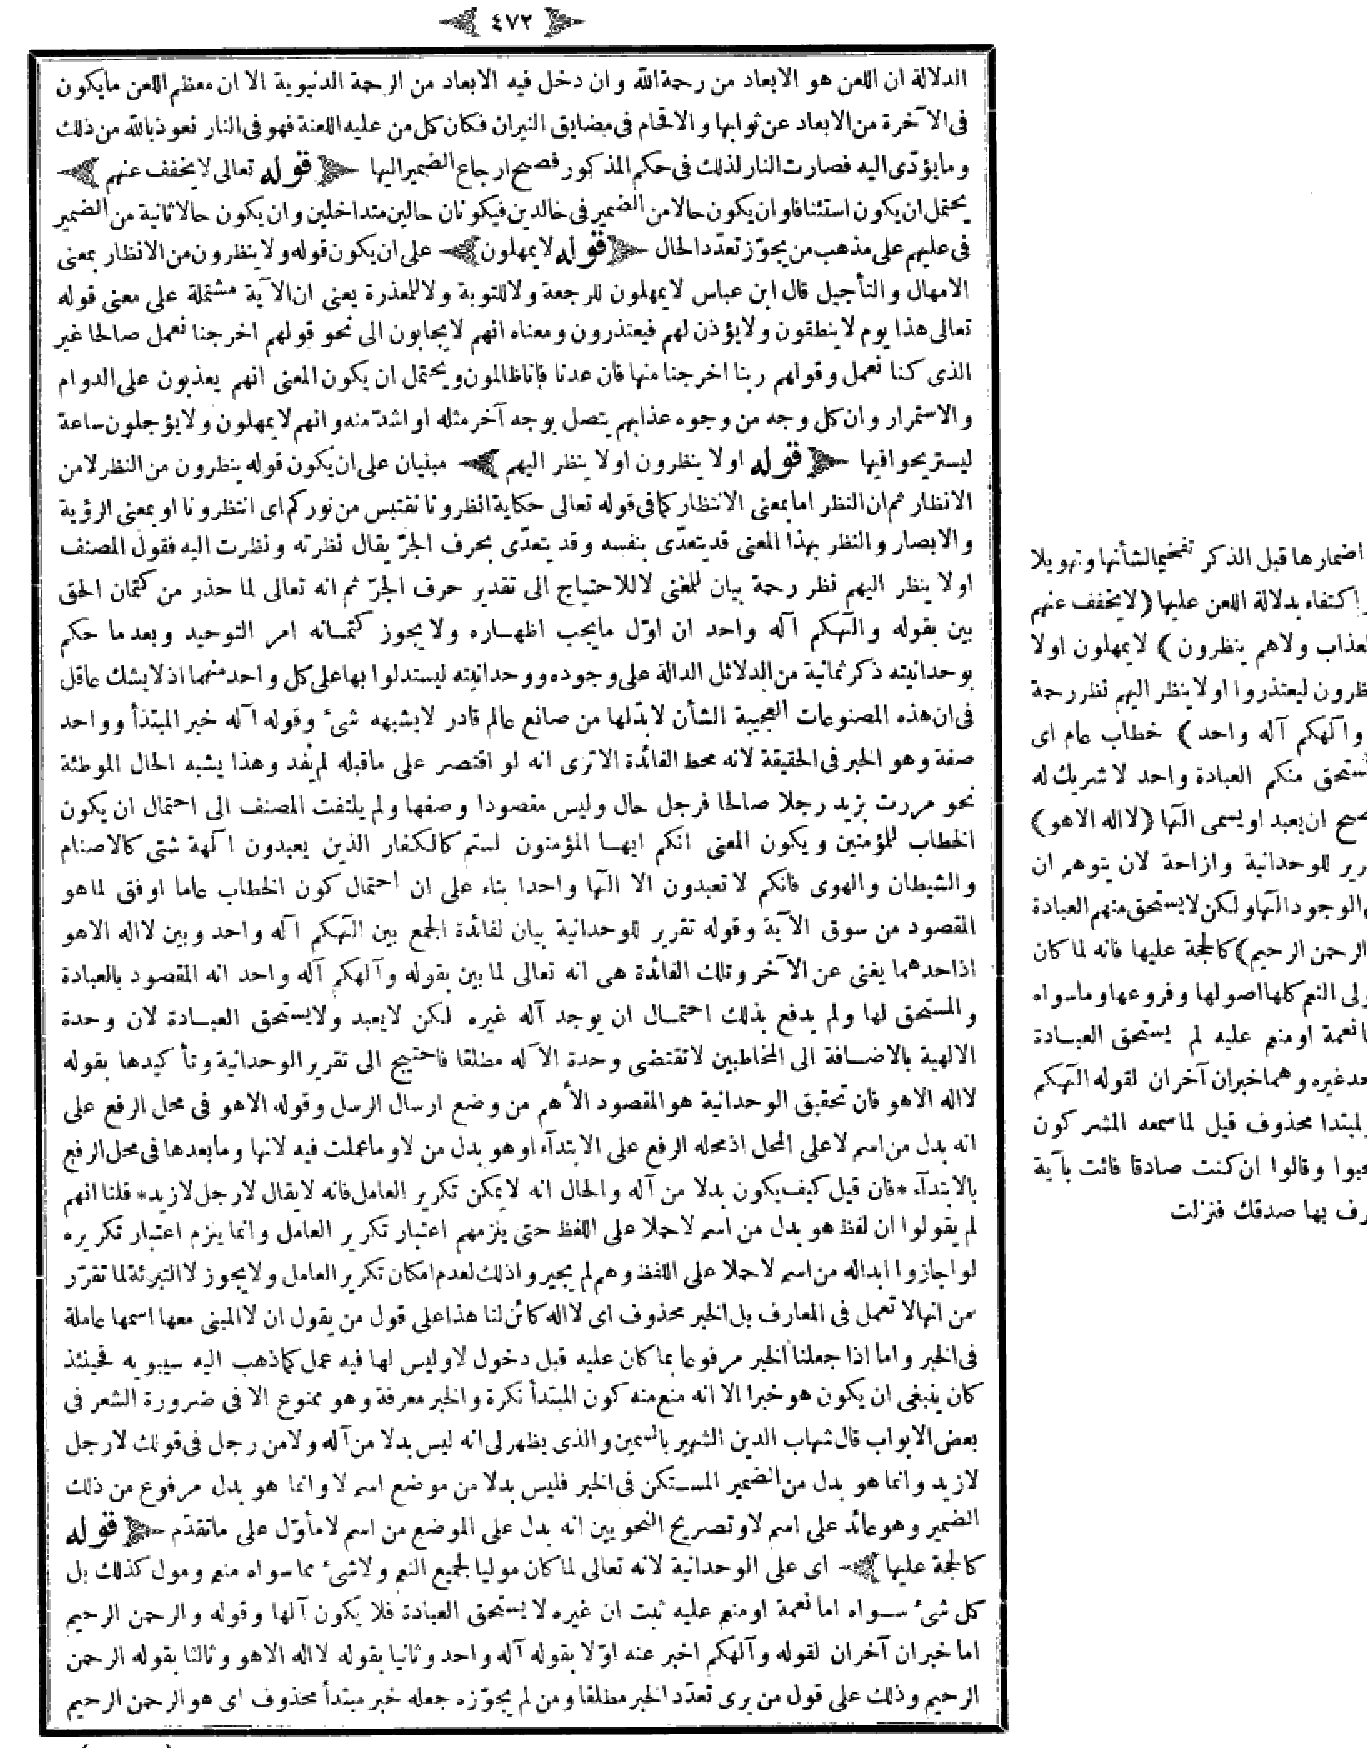 ٤٧٢
الدلالة ان اللعن هو الابعاد من رحمة الله وان دخل فيه الابعاد من الرحمة الدنيوية الا ان معظم اللعن مايكون
فى الآخرة من الابعاد عن ثوابها والاقحام فى مضايق النيران فكان كل من عليه اللعنة فهو فى النار نعوذ بالله من ذلك
ومايؤدّى اليه فصارت النار لذلك فى حكم المذكور فصح ارجاع الضمير اليها قوله تعالى لا يخفف عنهم
يحتمل ان يكون استئنافا وان يكون حالا من الضمير فى خالدين فيكونان حالين متداخلين وان يكون حالا ثانية من الضمير
فى عليهم على مذهب من يجوّز تعدّد الحال قوله لايمهلون على ان يكون قوله ولا ينظرون من الانظار بمعنى
الامهال والتأجيل قال ابن عباس لايمهلون للرجعة ولا للتوبة ولا للمعذرة يعنى ان الآية مشتملة على معنى قوله
تعالى هذا يوم لا ينطقون ولا يؤذن لهم فيعتذرون ومعناه انهم لا يجابون الى نحو قولهم اخرجنا نعمل صالحا غير
الذى كنا نعمل وقولهم ربنا اخرجنا منها فان عدنا فانا ظالمون ويحتمل ان يكون المعنى انهم يعذبون على الدوام
والاستمرار وان كل وجه من وجوه عذابهم يتصل بوجه آخر مثله او اشدّ منه وانهم لايمهلون ولا يؤجلون ساعة
ليستريحوا فيها قوله اولا ينظرون اولا ينظر اليهم مبنيان على ان يكون قوله ينظرون من النظر لا من
الانظار ثم ان النظر اما بمعنى الانتظار كما فى قوله تعالى حكاية انظرونا نقتبس من نوركم اى انتظرونا او بمعنى الرؤية
والابصار والنظر بهذا المعنى قد يتعدّى بنفسه وقد يتعدّى بحرف الجرّ يقال نظرته ونظرت اليه فقول المصنف
اولا ينظر اليهم نظر رحمة بيان للمعنى لا للاحتياج الى تقدير حرف الجرّ ثم انه تعالى لما حذر من كتمان الحق
بين بقوله والهكم آله واحد ان اوّل مايجب اظهاره ولا يجوز كتمانه امر التوحيد وبعد ما حكم
بوحدانيته ذكر ثمانية من الدلائل الدالة على وجوده ووحدانيته ليستدلوا بها على كل واحد منهما اذ لايشك عاقل
فى ان هذه المصنوعات العجيبة الشأن لابدّلها من صانع عالم قادر لايشبهه شئ وقوله آله خبر المبتدأ وواحد
صفة وهو الخبر فى الحقيقة لانه محط الفائدة الاترى انه لو اقتصر على ماقبله لم يفد وهذا يشبه الحال الموطئة
نحو مررت بزيد رجلا صالحا فرجل حال وليس مقصودا وصفها ولم يلتفت المصنف الى احتمال ان يكون
الخطاب للمؤمنين ويكون المعنى انكم ايها المؤمنون لستم كالكفار الذين يعبدون آلهة شتى كالاصنام
والشيطان والهوى فانكم لاتعبدون الا الها واحدا بناء على ان احتمال كون الخطاب عاما اوفق لماهو
المقصود من سوق الآية وقوله تقرير للوحدانية بيان لفائدة الجمع بين الهكم آله واحد وبين لااله الاهو
اذاحدهما يغنى عن الآخر وتلك الفائدة هى انه تعالى لما بين بقوله وآلهكم آله واحد انه المقصود بالعبادة
والمستحق لها ولم يدفع بذلك احتمال ان يوجد آله غيره لكن لايعبد ولايستحق العبادة لان وحدة
الالهية بالاضافة الى المخاطبين لاتقتضى وحدة الآله مطلقا فاحتيج الى تقرير الوحدانية وتأكيدها بقوله
لااله الاهو فان تحقيق الوحدانية هو المقصود الأهم من وضع ارسال الرسل وقوله الاهو فى محل الرفع على
انه بدل من اسم لا على المحل اذ محله الرفع على الابتدآء او هو بدل من لا وماعملت فيه لانها ومابعدها فى محل الرفع
بالابتدآء *فان قيل كيف يكون بدلا من آله والحال انه لايمكن تكرير العامل فانه لايقال لارجل لازيد* قلنا انهم
لم يقولوا ان لفظ هو بدل من اسم لاحملا على اللفظ حتى يلزمهم اعتبار تكرير العامل وانما يلزم اعتبار تكريره
لو اجازوا ابداله من اسم لاحملا على اللفظ وهم لم يجيزوا ذلك لعدم امكان تكرير العامل ولايجوز لا التبرئة لما تقرّر
من انها لا تعمل فى المعارف بل الخبر محذوف اى لااله كائن لنا هذا على قول من يقول ان لا المبنى معها اسمها عاملة
فى الخبر واما اذا جعلنا الخبر مرفوعا بما كان عليه قبل دخول لا وليس لها فيه عمل كماذهب اليه سيبويه فحينئذ
كان ينبغى ان يكون هو خبرا الا انه منع منه كون المبتدأ نكرة والخبر معرفة وهو ممنوع الا فى ضرورة الشعر فى
بعض الابواب قال شهاب الدين الشهير بالسمين والذى يظهر لى انه ليس بدلا من آله ولامن رجل فى قولك لارجل
لازيد وانما هو بدل من الضمير المستكن فى الخبر فليس بدلا من موضع اسم لا وانما هو بدل مرفوع من ذلك
الضمير وهو عائد على اسم لا وتصريح النحويين انه بدل على الموضع من اسم لا مأوّل على ماتقدّم قوله
كالحجة عليها اى على الوحدانية لانه تعالى لما كان موليا لجميع النعم ولاشئ مما سواه منعم ومول كذلك بل
كل شئ سواه اما نعمة او منعم عليه ثبت ان غيره لا يستحق العبادة فلا يكون آلها وقوله والرحمن الرحيم
اما خبران آخران لقوله وآلهكم اخبر عنه اوّلا بقوله آله واحد وثانيا بقوله لااله الاهو وثالثا بقوله الرحمن
الرحيم وذلك على قول من يرى تعدّد الخبر مطلقا ومن لم يجوّزه جعله خبر مبتدأ محذوف اى هو الرحمن الرحيم
اضمارها قبل الذكر تفخيما لشأنها وتهويلا
اكتفاء بدلالة اللعن عليها (لايخفف عنهم
العذاب ولاهم ينظرون) لايمهلون اولا
ينظرون ليعتذروا اولا ينظر اليهم نظر رحمة
وآلهكم آله واحد) خطاب عام اى
المستحق منكم العبادة واحد لاشريك له
يصح ان يعبد او يسمى الها (لااله الاهو)
تقرير للوحدانية وازاحة لان يتوهم ان
الوجود الها ولكن لا يستحق منهم العبادة
الرحمن الرحيم) كالحجة عليها فانه لما كان
مولى النعم كلها اصولها وفروعها وماسواه
اما نعمة او منعم عليه لم يستحق العبادة
احد غيره وهما خبران آخران لقوله الهكم
المبتدا محذوف قيل لما سمعه المشركون
تعجبوا وقالوا ان كنت صادقا فائت بآية
نعرف بها صدقك فنزلت